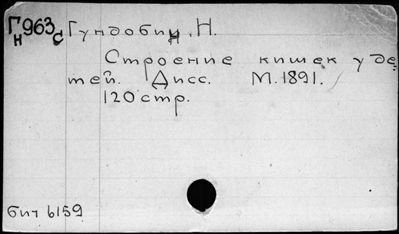 Гн963с Гундобин, Н.
Строение кишек у де=
тей. Дисс. М. 1891.
120 стр.
бит 6159